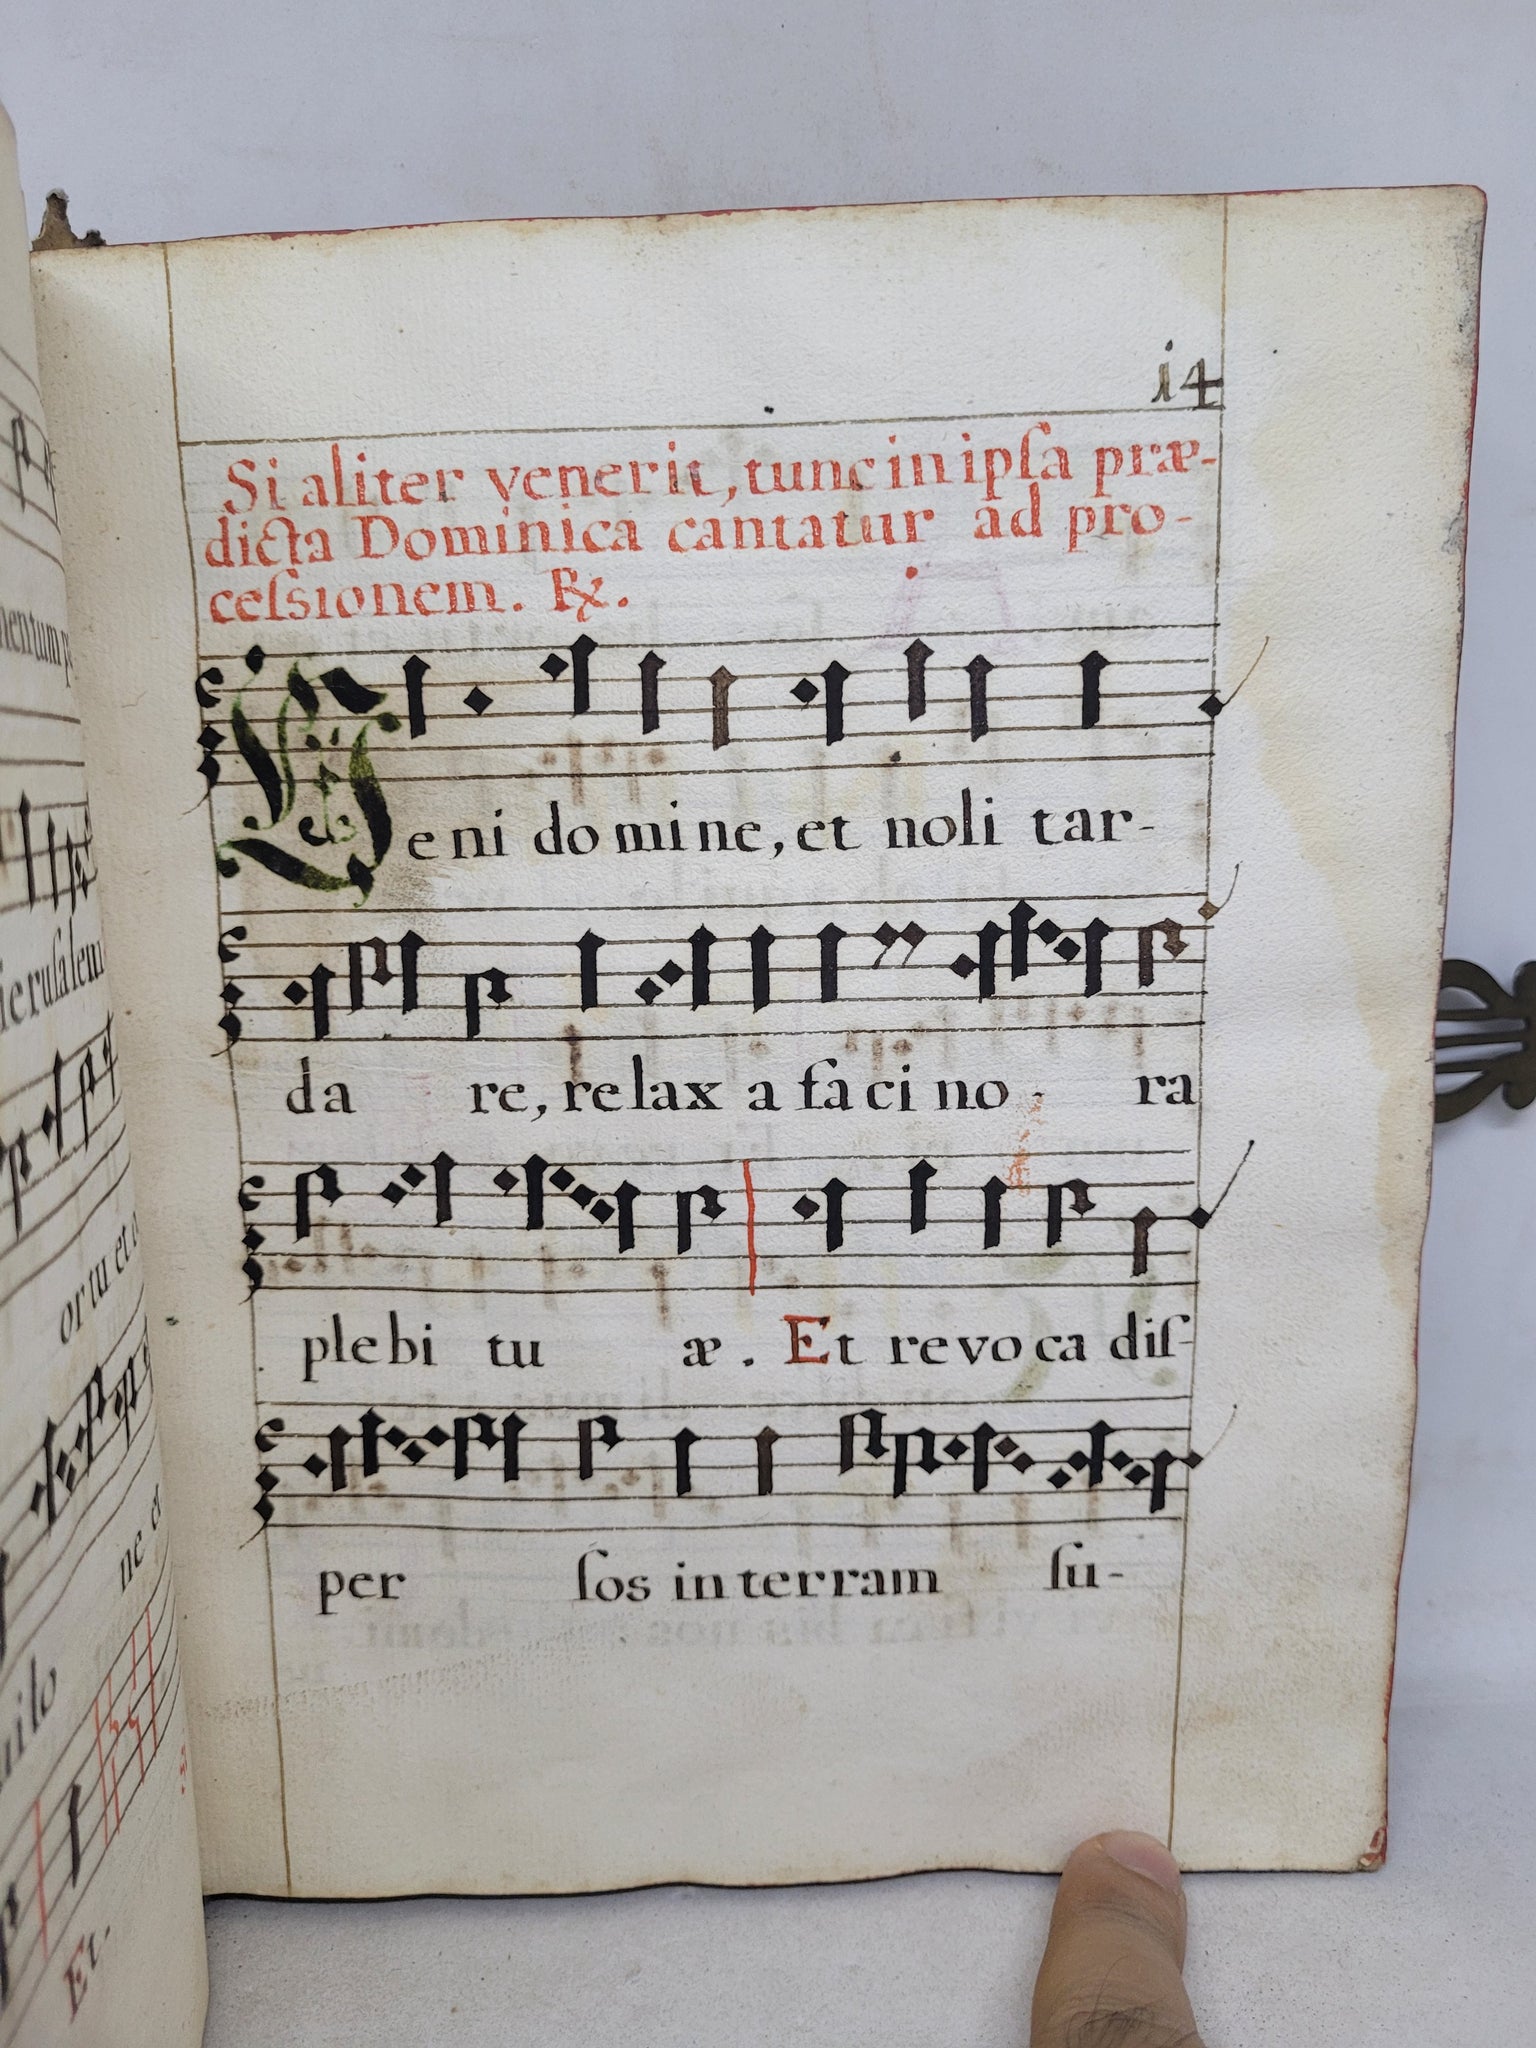 14
Si aliter venerit, tunc in ipſa præ-
dicta Dominica cantatur ad pro-
ceſsionem. ℟.
Veni domine, et noli tar-
da re, relaxa facino - ra
plebi tu æ. Et revoca diſ-
per ſos in terram ſu-
mentum
ieruſalem
ortu et
ne et
uilo
Et.